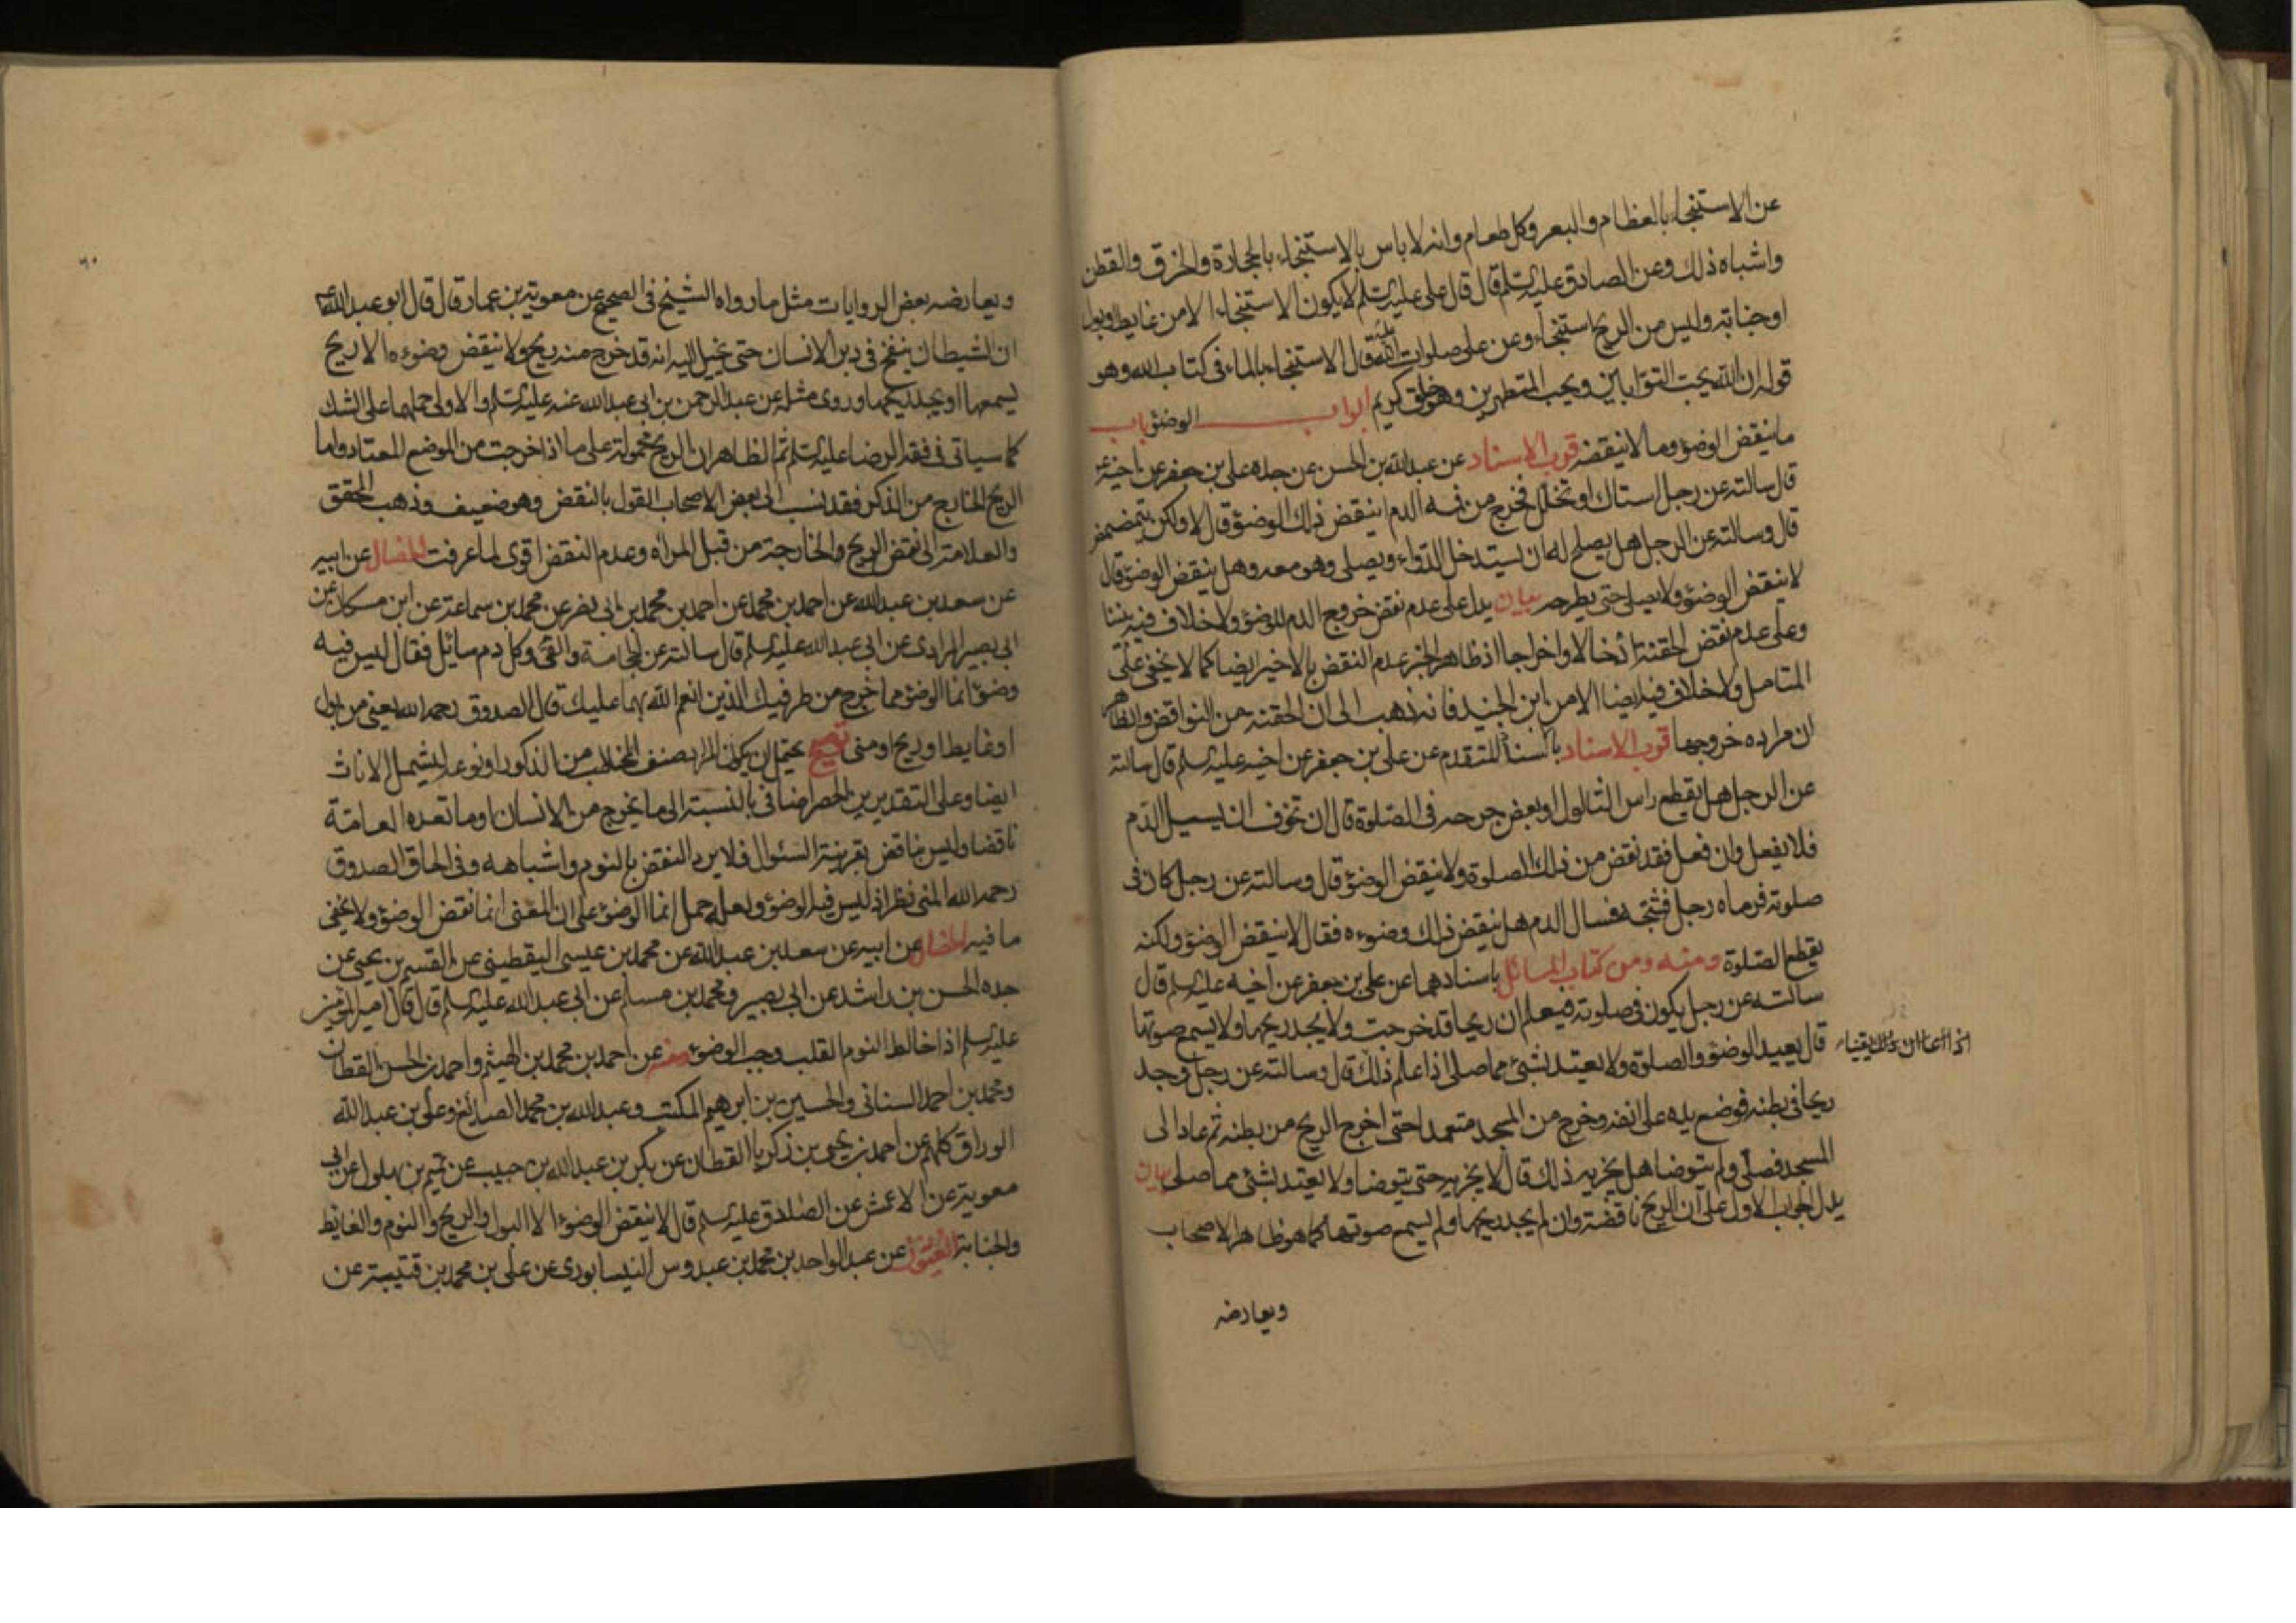 عن الاستنجاء بالعظام والبعر وكل طعام وانه لا باس بالاستنجاء بالحجارة والخرق والقطن
واشباه ذلك وعن الصادق عليه السلم قال قال علي عليه السلم لا يكون الاستنجاء الا من غايط او بول
او جنابة وليس من الريح استنجاء وعن علي صلوات الله عليه قال الاستنجاء بالماء في كتاب الله وهو
قوله ان الله يحب التوابين ويحب المتطهرين وهو خلق كريم ابواب الوضوء باب
ما ينقض الوضوء وما لا ينقضه قرب الاسناد عن عبدالله بن الحسن عن جده علي بن جعفر عن اخيه ع
قال سالته عن رجل استاك او تخلل فخرج من فمه الدم اينقض ذلك الوضوء قال لا ولكن يتمضمض
قال وسالته عن الرجل هل يصلح له ان يستدخل الدواء ويصلي وهو معه وهل ينقض الوضوء قال
لا ينقض الوضوء ولا يصلي حتى يطرحه بيان يدل على عدم نقض خروج الدم للوضوء ولا خلاف فيه بيننا
وعلى عدم نقض الحقنة ادخالا واخراجا اذ ظاهر الخبر عدم النقض بالاخير ايضا كما لا يخفى على
المتامل ولا خلاف فيه ايضا الا من ابن الجنيد فانه ذهب الى ان الحقنة من النواقض والظاهر
ان مراده خروجها قرب الاسناد باسناد المتقدم عن علي بن جعفر عن اخيه عليه السلم قال سالته
عن الرجل هل يقطع راس الثالول او بعض جرحه في الصلوة قال ان تخوف ان يسيل الدم
فلا يفعل وان فعل فقد نقض من ذلك الصلوة ولا ينقض الوضوء قال وسالته عن رجل كان في
صلوته فرماه رجل فشجه فسال الدم هل ينقض ذلك وضوءه فقال لا ينقض الوضوء ولكنه
يقطع الصلوة ومنه ومن كتاب المسائل باسنادهما عن علي بن جعفر عن اخيه عليه السلم قال
سالته عن رجل يكون في صلوته فيعلم ان ريحا قد خرجت ولا يجد ريحها ولا يسمع صوتها
قال يعيد الوضوء والصلوة ولا يعتد بشئ مما صلى اذا علم ذلك قال وسالته عن رجل وجد
ريحا في بطنه فوضع يده على انفه وخرج من المسجد متعمدا حتى اخرج الريح من بطنه ثم عاد الى
المسجد فصلى ولم يتوضا هل يجزيه ذلك قال لا يجزيه حتى يتوضا ولا يعتد بشئ مما صلى بيان
يدل الجواب الاول على ان الريح ناقضة وان لم يجد ريحها ولم يسمع صوتها كما هو ظاهر الاصحاب
ويعارضه
ويعارضه بعض الروايات مثل ما رواه الشيخ في الصحيح عن معوية بن عمار قال قال ابو عبدالله ع
ان الشيطان ينفخ في دبر الانسان حتى يخيل اليه انه قد خرج منه ريح ولا ينقض وضوءه الا ريح
يسمعها او يجد ريحها وروى مثله عن عبد الرحمن بن ابي عبدالله عنه عليه السلم والاولى حملها على الشك
كما سياتي في فقه الرضا عليه السلم ثم الظاهر ان الريح محمولة على ما اذا خرجت من الموضع المعتاد واما
الريح الخارج من الذكر فقد نسب الى بعض الاصحاب القول بالنقض وهو ضعيف وذهب المحقق
والعلامة الى نقض الريح والخارجة من قبل المراة وعدم النقض اقوى لما عرفت الخصال عن ابيه
عن سعد بن عبدالله عن احمد بن محمد عن احمد بن محمد بن ابي نصر عن محمد بن سماعة عن ابن مسكان عن
ابي بصير المرادي عن ابي عبدالله عليه السلم قال سالته عن الحجامة والقئ وكل دم سائل فقال ليس فيه
وضوء انما الوضوء مما خرج من طرفيك الذين انعم الله بهما عليك قال الصدوق رحمه الله يعني من بول
او غايط او ريح او مني توضيح يحتمل ان يكون المراد صنف المخاطب من الذكور او نوعه ليشمل الاناث
ايضا وعلى التقديرين الحصر اضافي بالنسبة الى ما يخرج من الانسان او ما تعده العامة
ناقضا وليس بناقض بقرينة السئوال فلا يرد النقض بالنوم واشباهه وفي الحاق الصدوق
رحمه الله المني نظر اذ ليس فيه الوضوء ولعله حمل انما الوضوء على ان المعنى انما نقض الوضوء ولا يخفى
ما فيه الخصال عن ابيه عن سعد بن عبدالله عن محمد بن عيسى اليقطيني عن القسم بن يحيى عن
جده الحسن بن راشد عن ابي بصير ومحمد بن مسلم عن ابي عبدالله عليه السلم قال قال امير المؤمنين
عليه السلم اذا خالط النوم القلب وجب الوضوء ومنه عن احمد بن محمد بن الهيثم واحمد بن الحسن القطان
ومحمد بن احمد السناني والحسين بن ابرهيم المكتب وعبدالله بن محمد الصايغ وعلي بن عبدالله
الوراق كلهم عن احمد بن يحيى بن زكريا القطان عن بكر بن عبدالله بن حبيب عن تميم بن بهلول عن ابي
معوية عن الاعمش عن الصادق عليه السلم قال لا ينقض الوضوء الا البول والريح والنوم والغايط
والجنابة العيون عن عبد الواحد بن محمد بن عبدوس النيسابوري عن علي بن محمد بن قتيبة عن